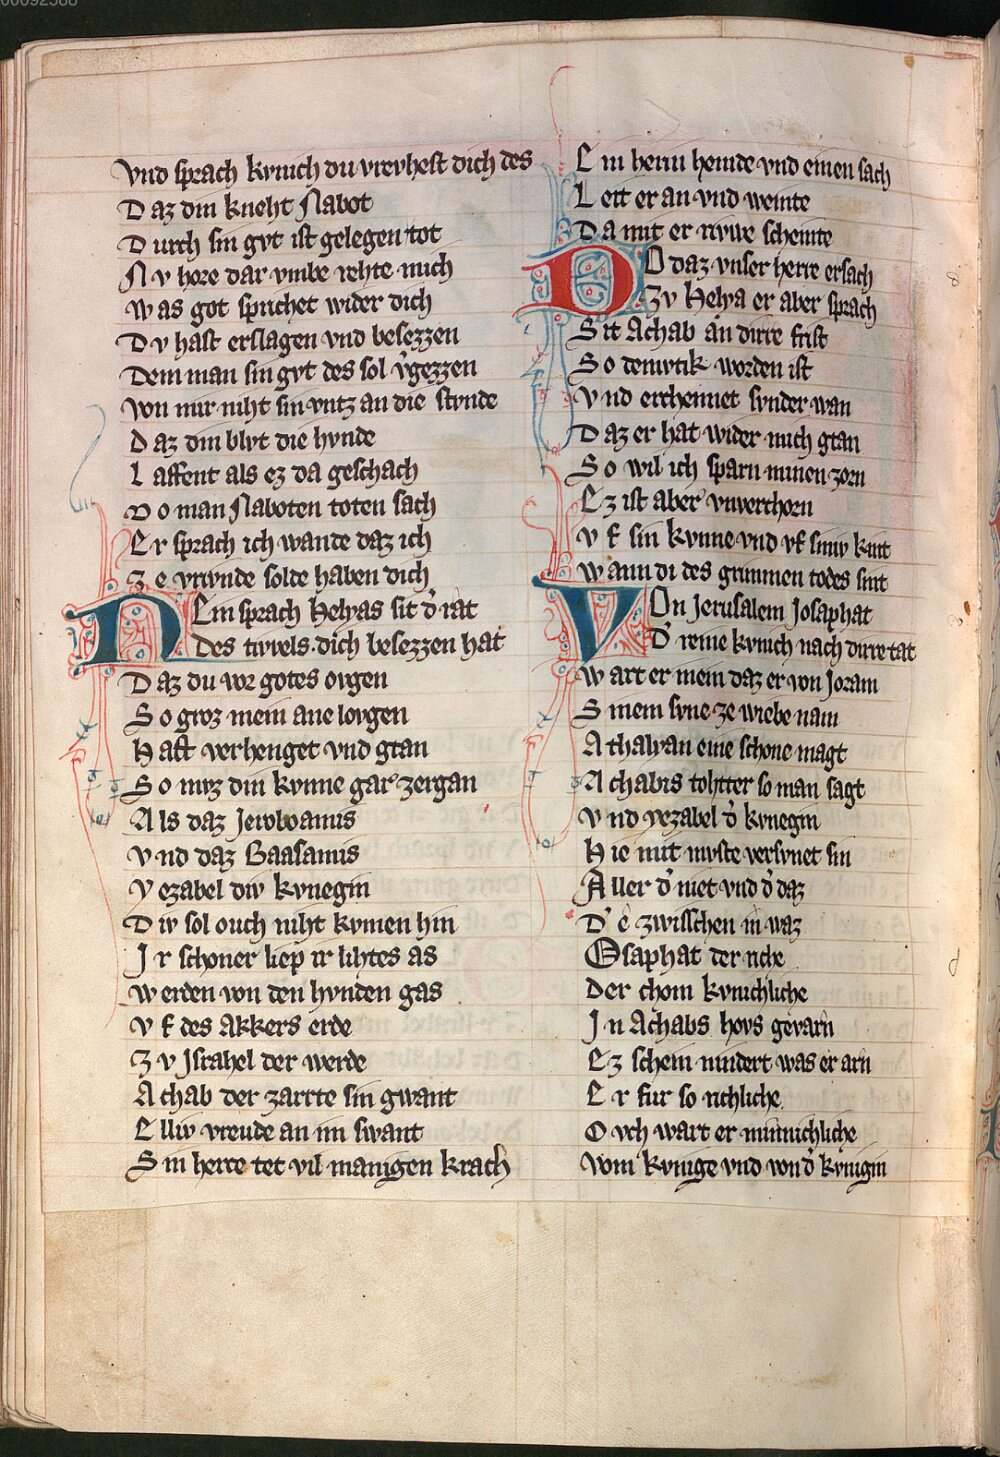 00092388
Vnd sprach kvnich du vrevhest dich des
Daz din kneht Nabot
Durch sin gvt ist gelegen tot
Nv hore dar vmbe rehte mich
Was got sprichet wider dich
Dv hast erslagen vnd besezzen
Dem man sin gvt des sol v͛gezzen
Von mir niht sin vntz an die stvnde
Daz din blvt die hvnde
Laffent als ez da geschach
Do man Naboten toten sach
Er sprach ich wande daz ich
Ze vrivnde solde haben dich
NEin sprach Helyas sit d͛ rat
Des tivvels dich besezzen hat
Daz du vor gotes ovgen
So groz mein ane lovgen
Hast verhenget vnd gtan
So mvz din kvnne gar zergan
Als daz Jeroboamis
Vnd daz Baasamis
Yezabel div kvnegin
Div sol ouch niht kvmen hin
Ir schoner liep ir lihtes as
Werden von den hvnden gas
Vf des akkers erde
Zv Israhel der werde
Achab der zarrte sin gwant
Elliv vreude an im swant
Sin herre tet vil manigen krach
Ein herin hemde vnd einen sach
Leit er an vnd weinte
Da mit er rivwe scheinte
DO daz vnser herre ersach
Zv Helya er aber sprach
Sit Achab an dirre frist
So demvtik worden ist
Vnd erchennet svnder wan
Daz er hat wider mich gtan
So wil ich sparn minen zorn
Ez ist aber vnverchorn
Vf sin kvnne vnd vf siniv kint
Wann di des grimmen todes sint
VOn Jerusalem Josaphat
D͛ reine kvnich nach dirre tat
Wart er mein daz er von Joram
Sinem svne ze wiebe nam
Athalyan eine schone magt
Achabis tohtter so man sagt
Vnd yezabel d͛ kvnegin
Hie mit mvste versvnet sin
Aller d͛ niet vnd d͛ daz
D͛ e zwisschen in waz
Josaphat der riche
Der chom kvnichliche
In Achabs hovs gevarn
Ez schein nindert was er arn
Er fur so richliche
Ovch wart er minnichliche
Vom kvnige vnd von d͛ kvnigin